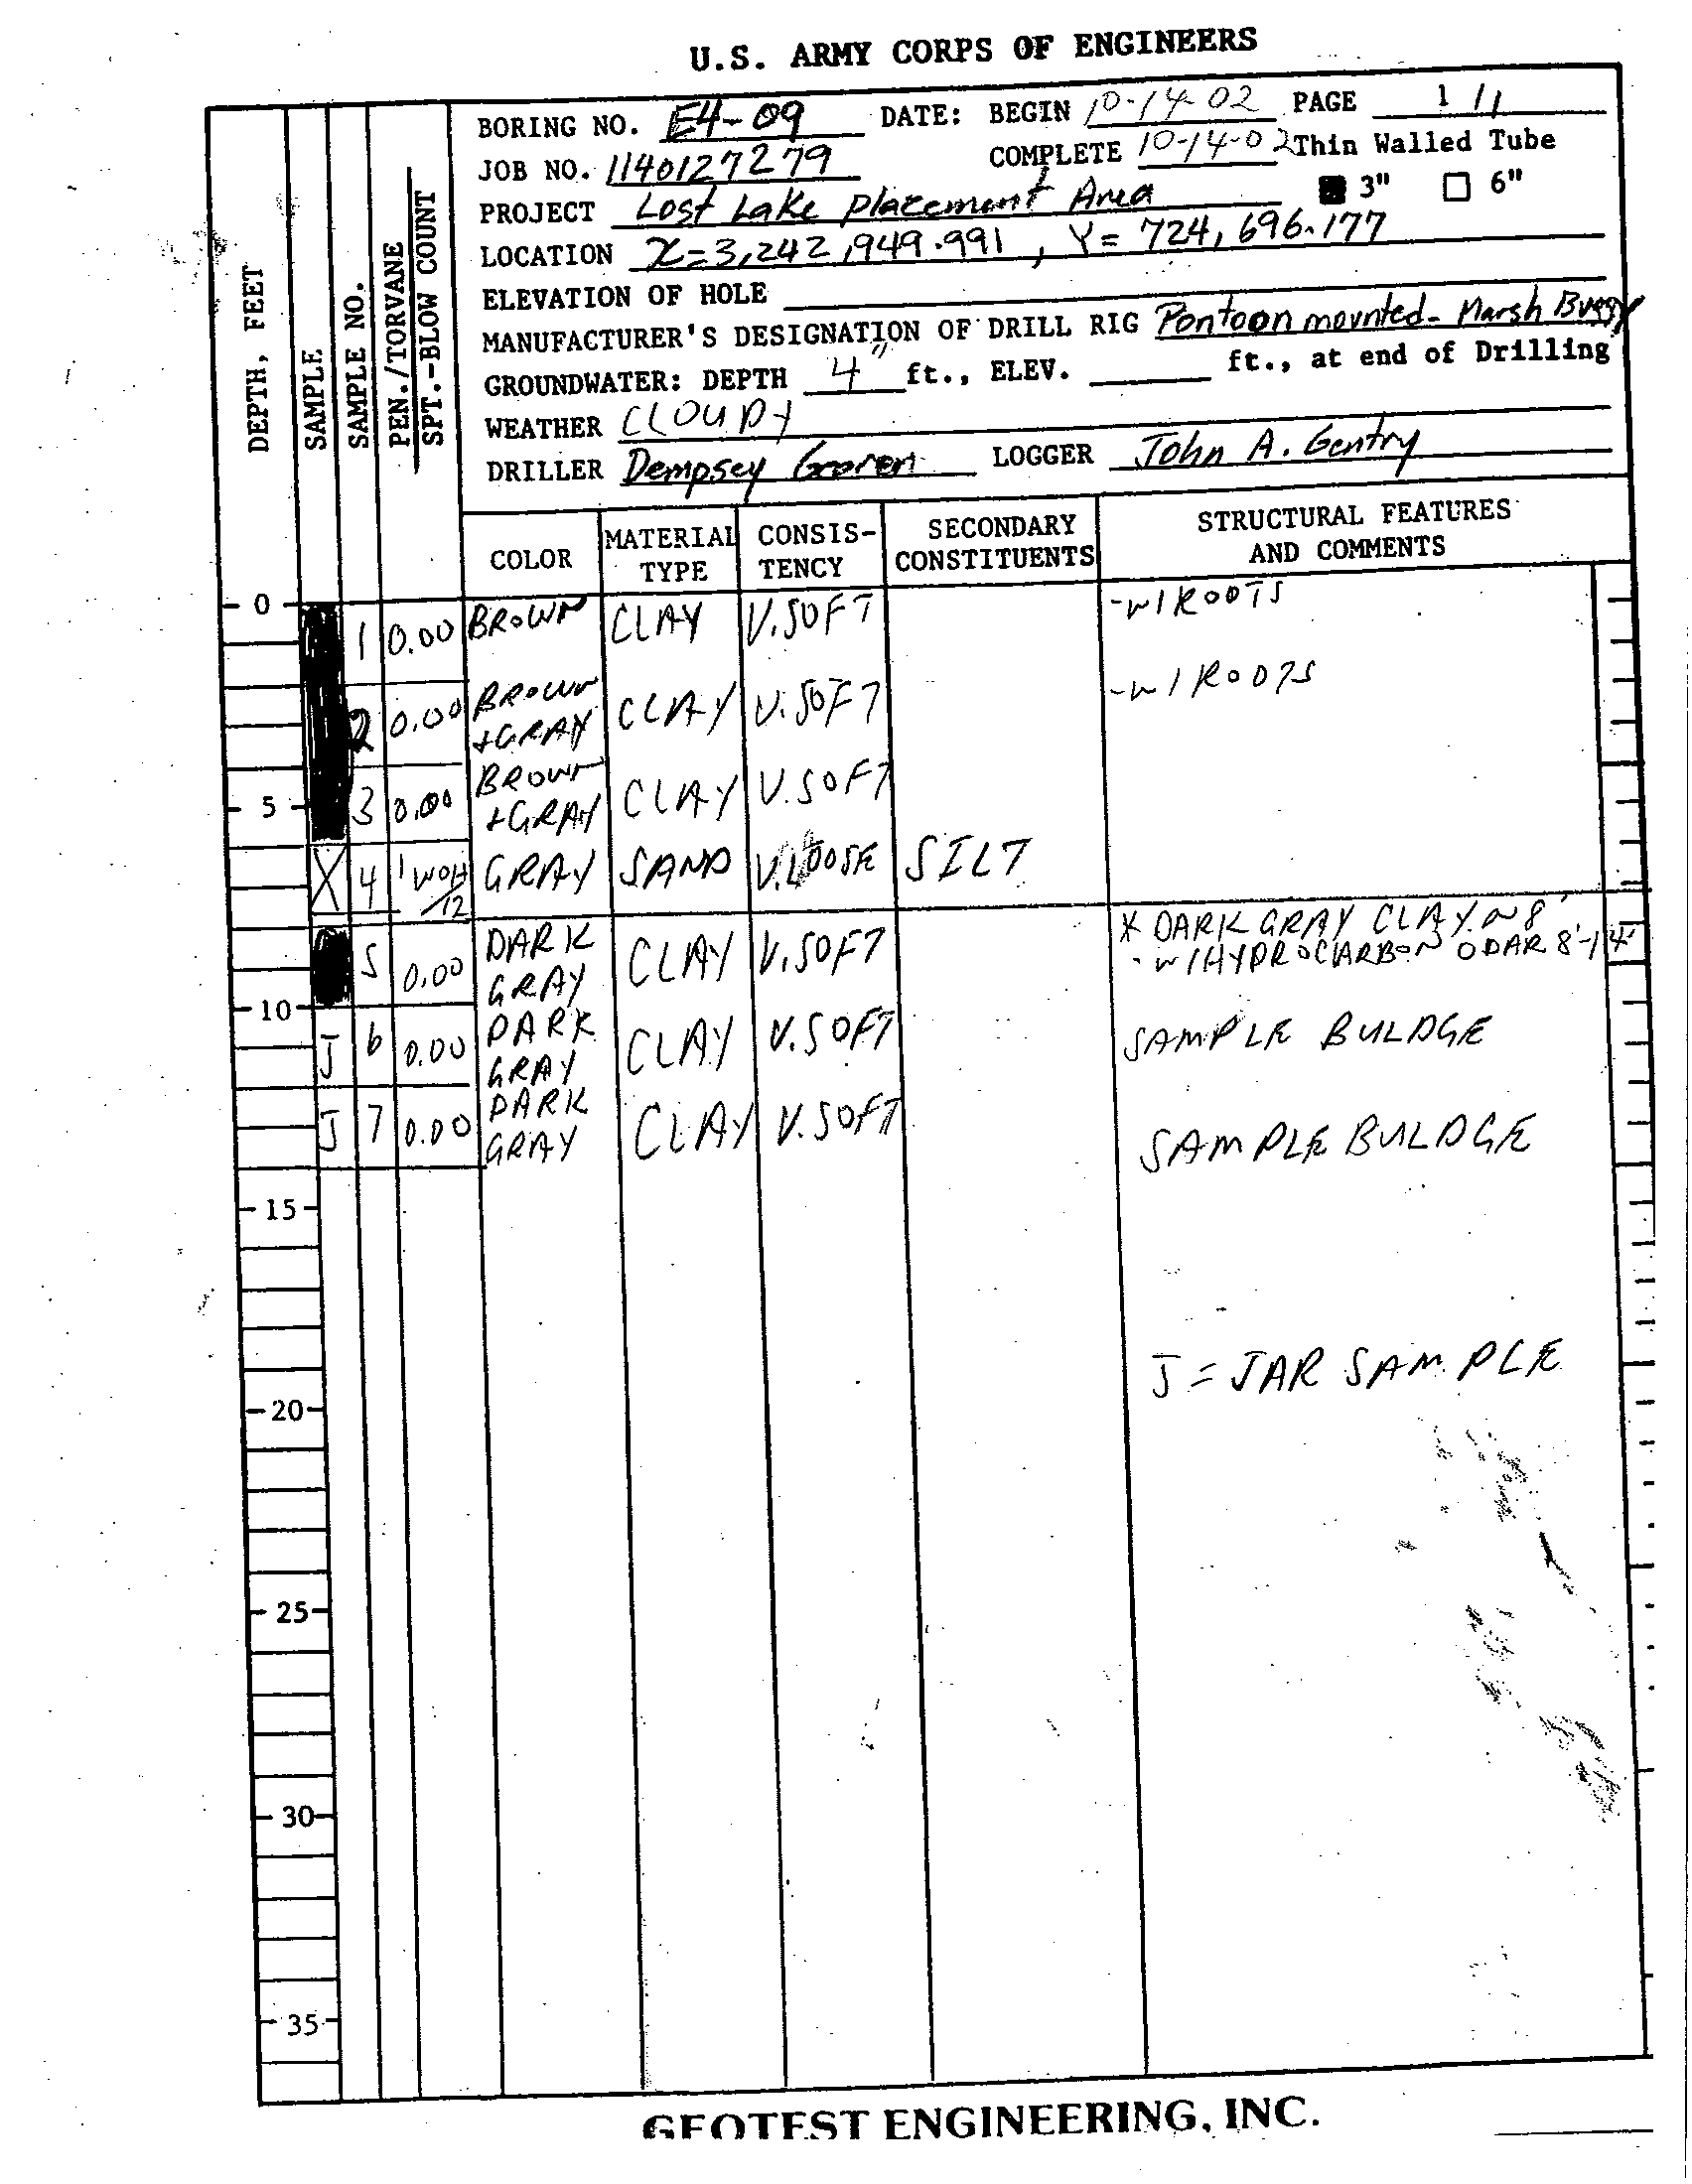 U.S. ARMY CORPS OF ENGINEERS
BORING NO. E4-09 DATE: BEGIN 10-14-02 PAGE 1/1
JOB NO. 1140127279 COMPLETE 10-14-02 Thin Walled Tube
PROJECT Lost Lake Placement Area 3" 6"
LOCATION X=3,242,949.991, Y= 724,696.177
ELEVATION OF HOLE
MANUFACTURER'S DESIGNATION OF DRILL RIG Pontoon mounted- Marsh Buggy
GROUNDWATER: DEPTH 4" ft., ELEV. ft., at end of Drilling
WEATHER CLOUDY
DRILLER Dempsey LOGGER John A. Gentry
DEPTH, FEET
SAMPLE
SAMPLE NO.
PEN./TORVANE
SPT.-BLOW COUNT
COLOR MATERIAL TYPE CONSIS-TENCY SECONDARY CONSTITUENTS STRUCTURAL FEATURES AND COMMENTS
0
1 0.00 BROWN CLAY V.SOFT -W/ROOTS
2 0.00 BROWN +GRAY CLAY V.SOFT -W/ROOTS
5
3 0.00 BROWN +GRAY CLAY V.SOFT
X 4 1 WOH/12 GRAY SAND V.LOOSE SILT
* DARK GRAY CLAY ~ 8'
5 0.00 DARK GRAY CLAY V.SOFT - W/HYDROCARBON ODAR 8'-14'
10
J 6 0.00 DARK GRAY CLAY V.SOFT SAMPLE BULDGE
J 7 0.00 DARK GRAY CLAY V.SOFT SAMPLE BULDGE
15
J = JAR SAMPLE
20
25
30
35
GEOTEST ENGINEERING, INC.